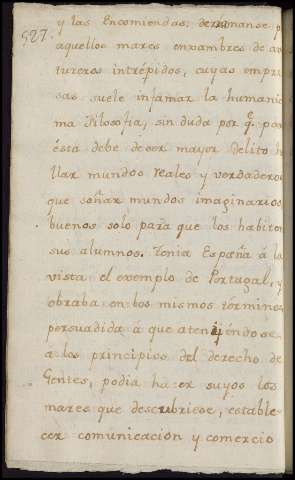 527.
y las Encomiendas; derramanse p
aquellos mares enxambres de av
tureros intrépidos, cuyas empre
sas suele infamar la humanis
ma Filosofia, sin duda por q.e pa
ésta debe de ser mayor delito h
llar mundos reales y verdadero
que soñar mundos imaginarios,
buenos solo para que los habiten
sus alumnos. Tenia España á la
vista el exemplo de Portugal, y
obraba en los mismos términos,
persuadida á que ateniéndose
á los principios del derecho de
Gentes, podia hacer suyos los
mares que descubriese, estable-
cer comunicación y comercio